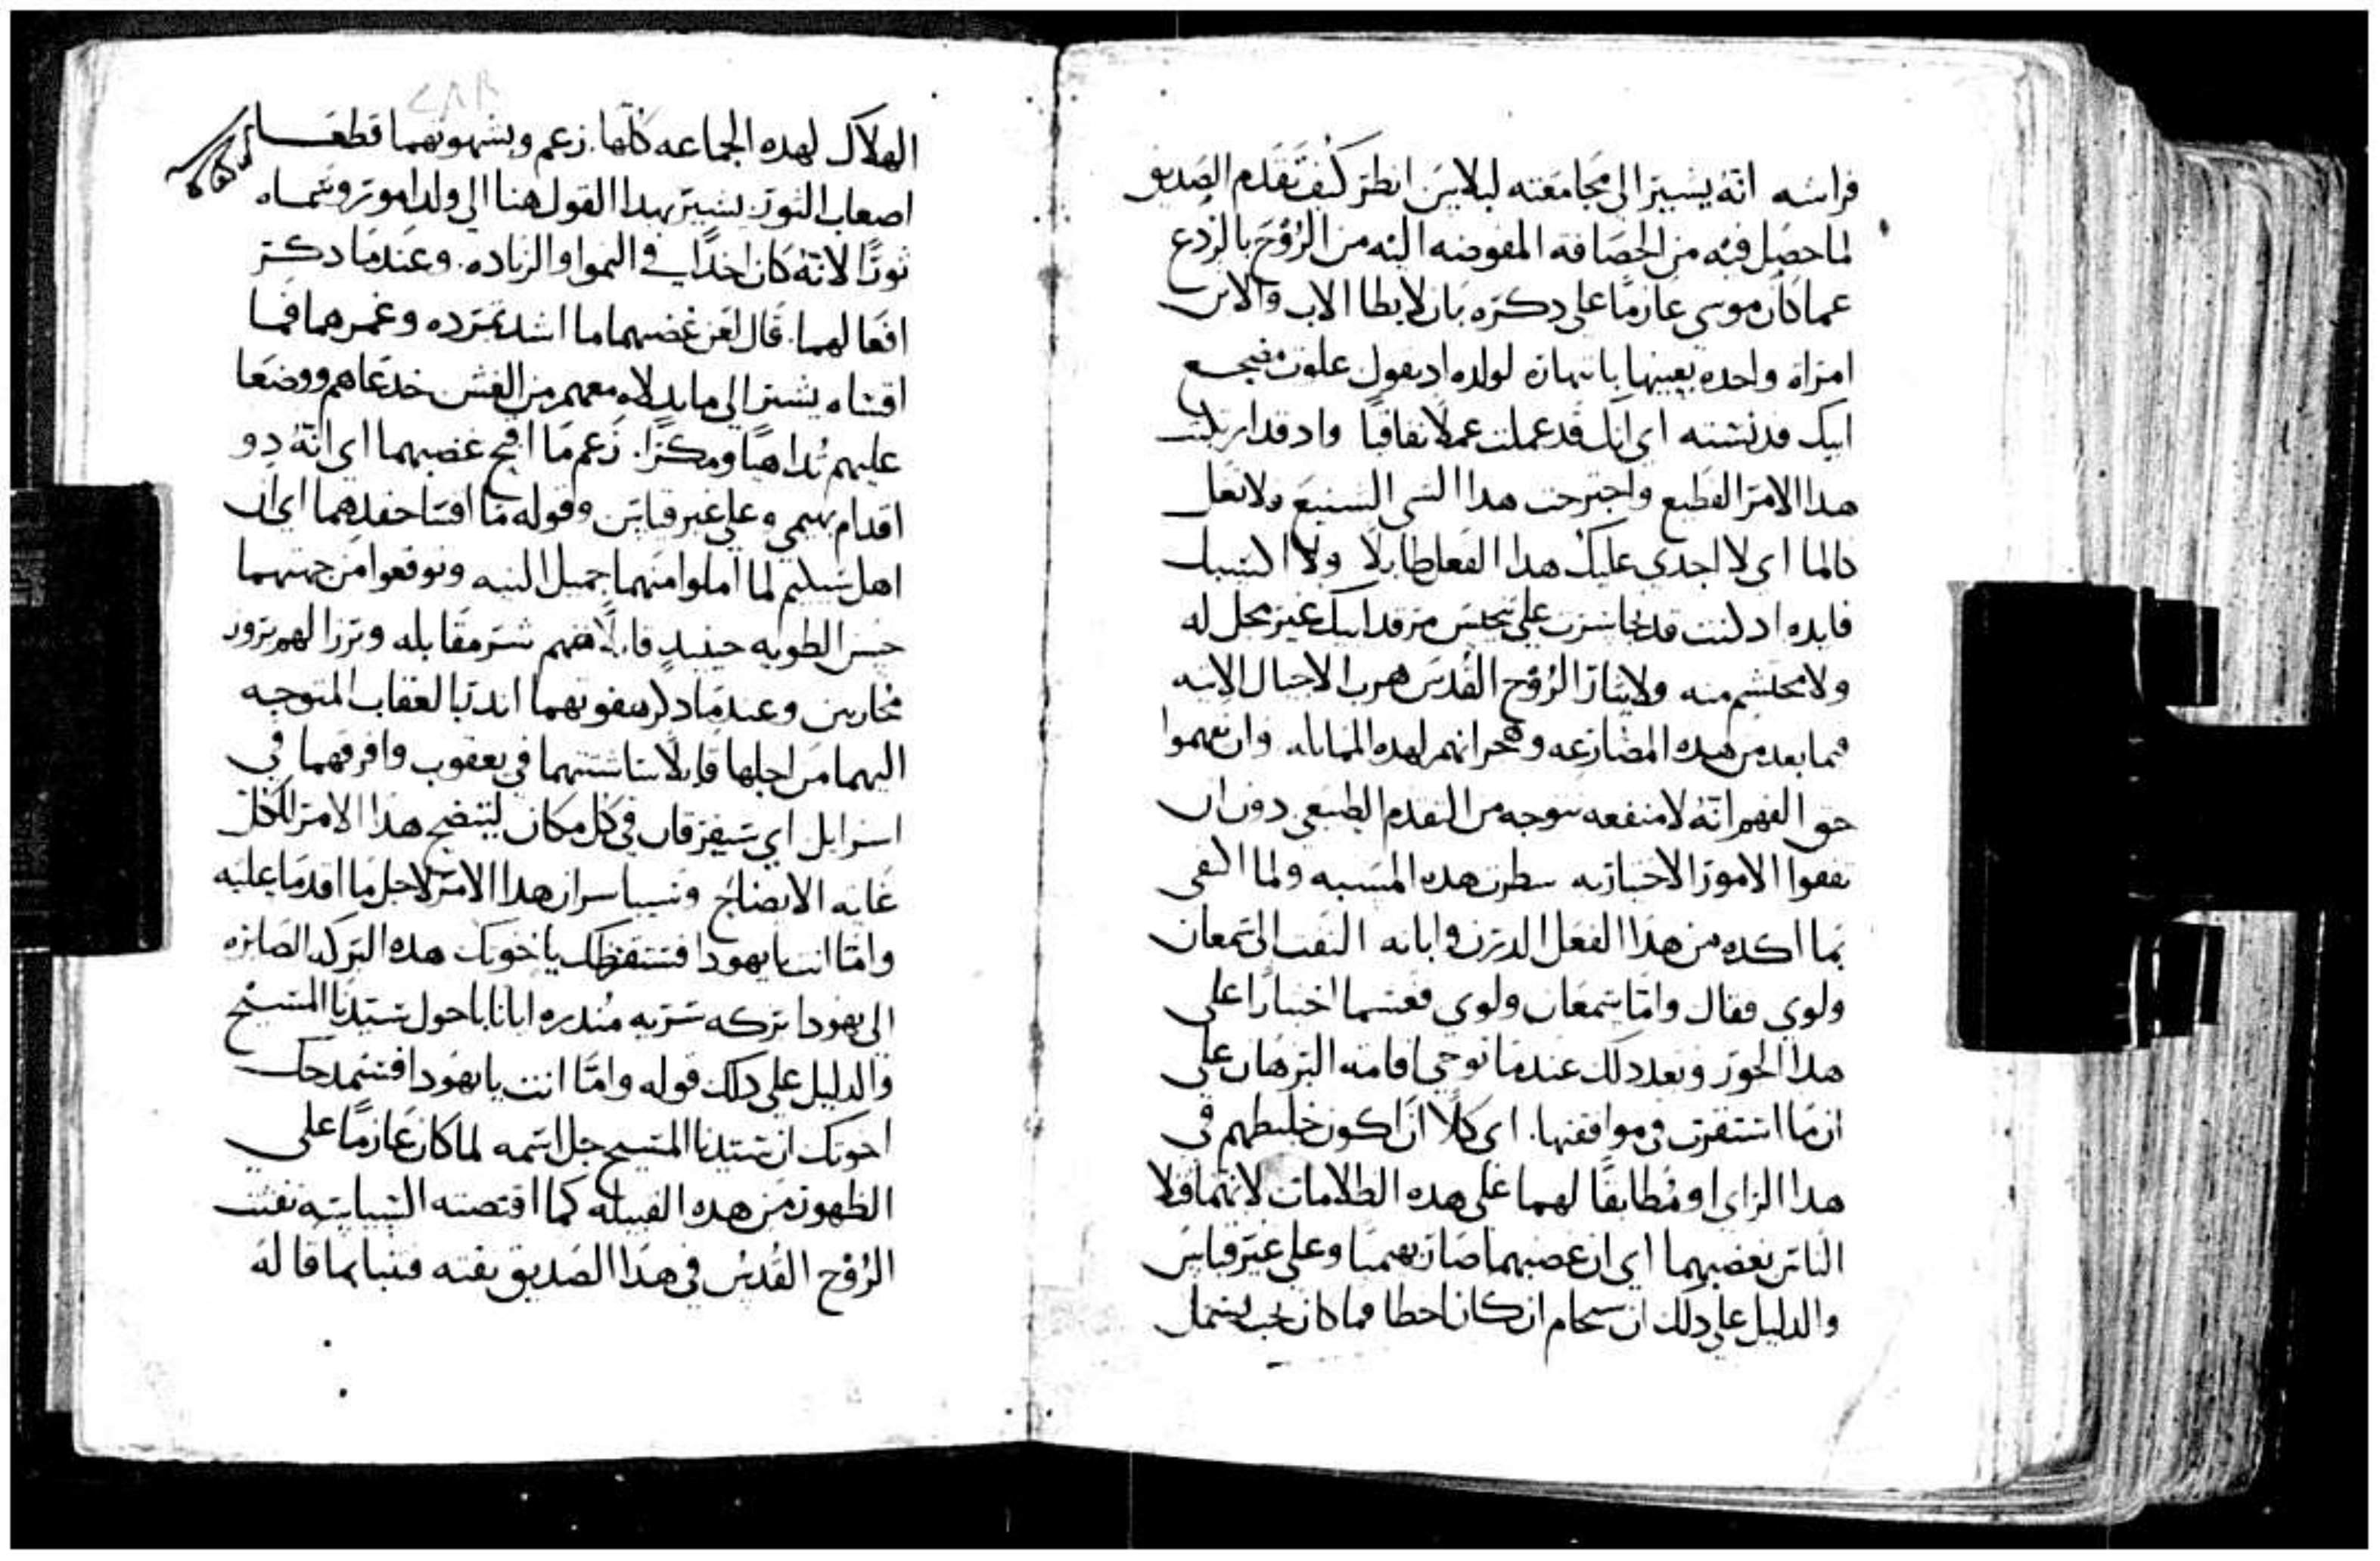 فراشه انّه يشير الى مجامعته لبلاس انظر كيف تقدم الصديق
لما حصل فيه من الحصافه المفوضه اليه من الروح بالردع
عما كان موسى عازمًا على دكره بان لا يطا الاب والابن
امراه واحده بعينها بانتهاره لولده اد يقول علوت مضجع
ابيك فدنسته اي انك قد عملت عملًا نفاقيًا واد قد ارتكبت
هدا الامر الفطيع واجترحت هدا الشي الشنيع ولا تغل
كالما اي لا اجدى عليك هدا الفعل طايلًا ولا اكسبك
فايده اد كنت قد تجاسرت على تنجيس مرقد ابيك غير محل له
ولا محتشم منه ولايثار الروح القدس هرب الاجيال الاتيه
فيما بعد من هده المضارعه وهجرانهم لهده المماتله وان يفهموا
حق الفهم انّه لا منفعه تتوجه من التقدم الطبيعي دون ان
تقفوا الامور الاختياريه سطرت هده المسبه ولما اكتفى
بما اكده من هدا الفعل الدرن وابانه التفت الى شمعان
ولوي فقال وامّا شمعان ولوي فغشما اختيارًا على
هدا الجور وبعد دلك عندما توخى اقامه البرهان على
ان ما استقرت في موافقتها. اي كلا ان اكون خليطهم في
هدا الراي او مطابقًا لهما على هده الطلامات لانهما قتلا
الناس بغضبهما اي ان غضبهما صار بهيميًا وعلى غير قياس
والدليل على دلك ان سحام ان كان اخطا فما كان يجب يشمل
الهلاك لهده الجماعه كلّها. زعم وبشهوتهما قطعا
اصعاب التور يشير بهدا القول هنا الى ولد امور وسماه
ثورًا لانّه كان اخدًا في النموا والزياده. وعندما دكر
افعالهما. قال لعن غضبهما ما اشد تمرده وغمرهما فما
اقساه يشير الى ما بدلاه معهم من الغش خدعاهم ووضعا
عليهم تداهيًا ومكرًا. زعم ما اقبح غضبهما اي انّه دو
اقدام بهيمي وعلى غير قياس وقوله ما اقسا حقدهما اي ان
اهل شليم لما املوا منهما جميل النيه وتوقعوا من جهتهما
حسن الطويه حينيدٍ قابلاهم شر مقابله وبرزا لهم برور
محاربين وعندما دكر هفوتهما اندر بالعقاب المتوجه
اليهما من اجلها قايلًا ساشتتهما في يعقوب وافرقهما في
اسرايل اي سيفرقان في كل مكان ليتضح هدا الامر للكل
غايه الاتضاح وتسيبا سران هدا الامر لاجل ما اقدما عليه
وامّا انت يا يهودا فستقرظك ياخوتك هده البركه الصايره
الى يهودا بركه سريه مندره ايانا باحوال سيدنا المسيح
والدليل على دلك قوله وامّا انت يا يهودا فستمدحك
اخوتك ان سيدنا المسيح جل اسمه لما كان عازمًا على
الظهور من هده القبيله كما اقتضته السياسه نفثت
الروح القدس في هدا الصديق نفثه فتنبا بما قاله